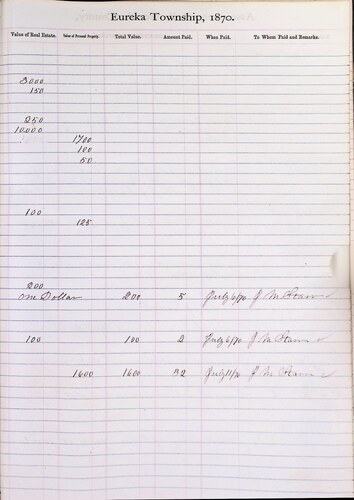 Eureka Township, 1870.
Value of Real Estate. Value of Personal Property. Total Value. Amount Paid. When Paid. To Whom Paid and Remarks.
3000
150
250
10.000
1700
100
50
100
125
200
One Dollar 200 5 July 6/70 J M
100 100 2 July 6/70 J M
1600 1600 32 July 11/70 J M